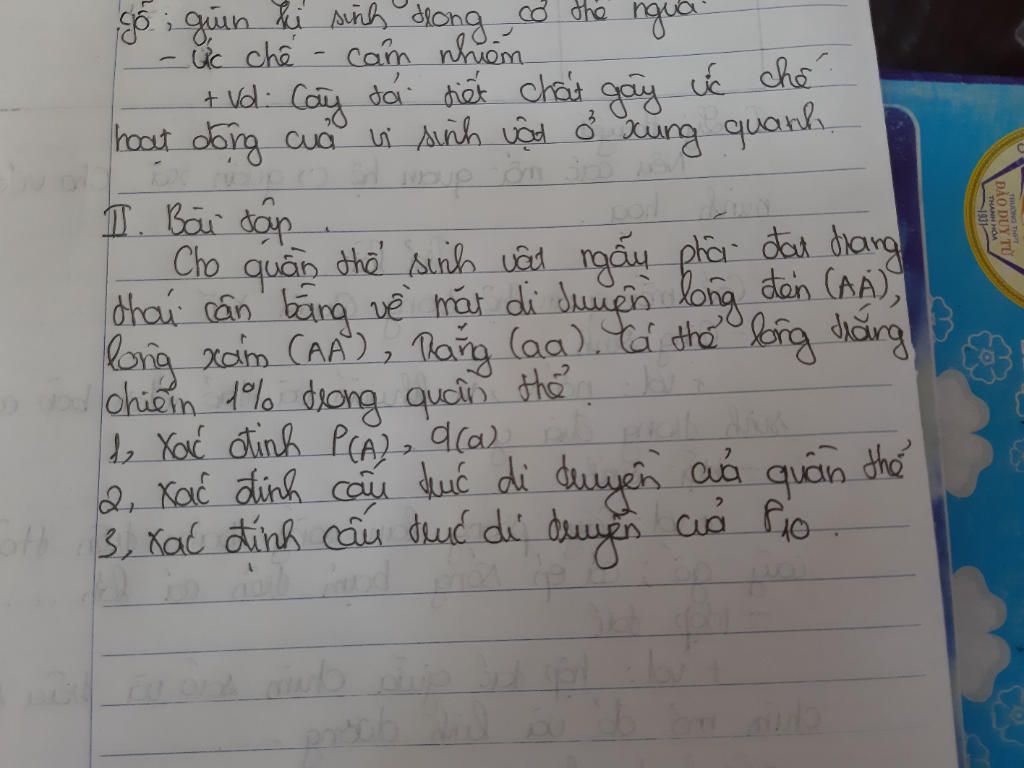 gỗ; giun kí sinh trong cơ thể người.
- Ức chế - cảm nhiễm
+ Vd: Cây tỏi tiết chất gây ức chế
hoạt động của vi sinh vật ở xung quanh.
II. Bài tập.
Cho quần thể sinh vật ngẫu phối đạt trạng
thái cân bằng về mặt di truyền lông đen (AA),
lông xám (AA), Trắng (aa). Cá thể lông trắng
chiếm 1% trong quần thể.
1, Xác định P(A), q(a)
2, Xác định cấu trúc di truyền của quần thể
3, Xác định cấu trúc di truyền của F10.
ĐÀO DUY TỪ